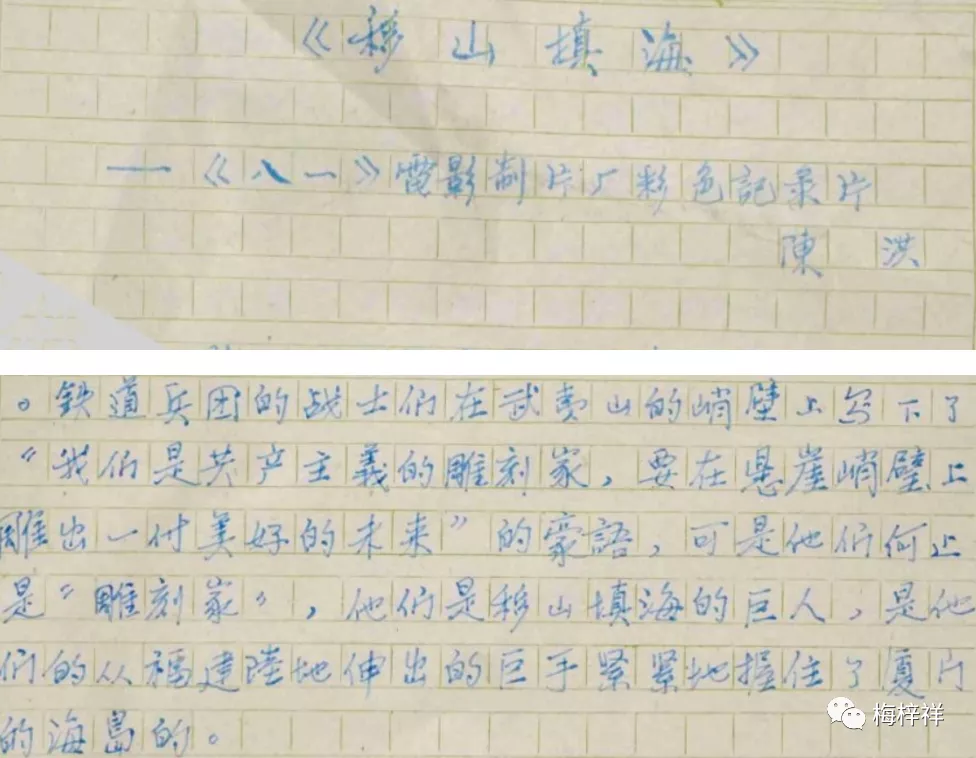 《移山填海》
—《八一》電影制片厂彩色記录片
陳洪
。鉄道兵团的战士们在武夷山的峭壁上写下了
“我们是共产主義的雕刻家，要在悬崖峭壁上
雕出一付美好的未来”的豪語，可是他们何止
是“雕刻家”，他们是移山填海的巨人，是他
们的从福建陸地伸出的巨手紧紧地握住了厦门
的海島的。
梅梓祥